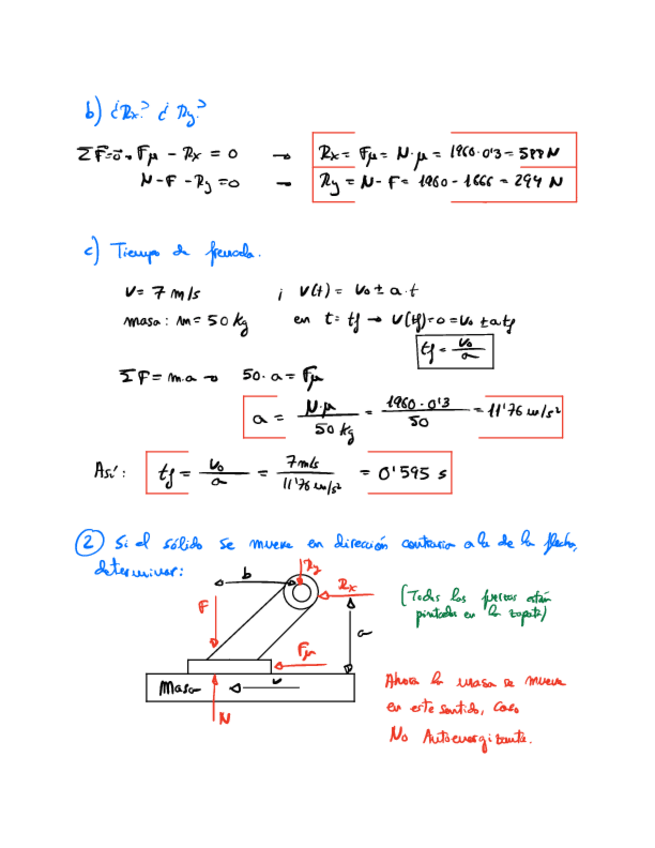 b) ¿Rx? ¿Ry?
ΣF=0 → Fμ - Rx = 0 → Rx = Fμ = N·μ = 1960·0'3 = 588 N
N - F - Ry = 0 → Ry = N - F = 1960 - 1666 = 294 N
c) Tiempo de frenada.
V = 7 m/s ; V(t) = V₀ ± a·t
masa: m = 50 kg en t = tf → V(tf) = 0 = V₀ ± a tf
tf = V₀/a
ΣF = m·a → 50·a = Fμ
a = N·μ / 50 kg = 1960·0'3 / 50 = 11'76 m/s²
Así: tf = V₀/a = 7 m/s / 11'76 m/s² = 0'595 s
2 Si el sólido se mueve en dirección contraria a la de la flecha,
determinar:
b
Ry
Rx
F
a
Fμ
Masa
v
N
(Todas las fuerzas están
pintadas en la zapata)
Ahora la masa se mueve
en este sentido, caso
No Autoenergizante.